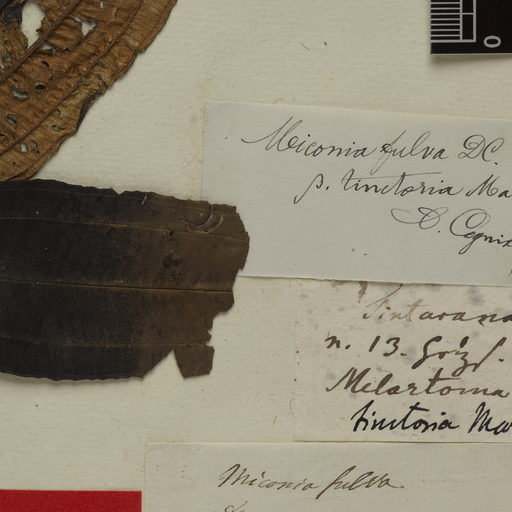 0
Miconia fulva DC.
β. tinctoria Ma
Cogni
n. 13.
Melastoma
tinctoria Ma
Miconia fulva